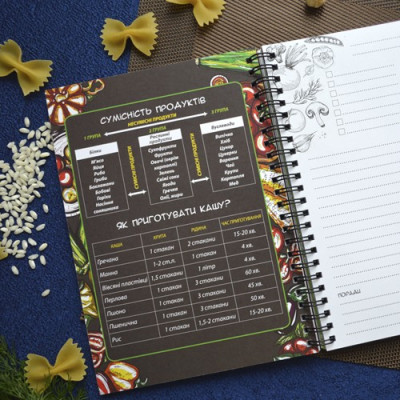 СУМІСНІСТЬ ПРОДУКТІВ
НЕСУМІСНІ ПРОДУКТИ
1 ГРУПА
2 ГРУПА
3 ГРУПА
Білки
М'ясо
Яйця
Риба
Гриби
Баклажани
Бобові
Горіхи
Насіння
соняшника
СУМІСНІ ПРОДУКТИ
Рослинні
продукти
Сухофрукти
Фрукти
Овочі (окрім
картоплі)
Зелень
Свіжі соки
Ягоди
Гречка
Олії, жири
СУМІСНІ ПРОДУКТИ
Вуглеводи
Випічка
Хліб
Цукор
Цукерки
Варення
Чай
Крупи
Картопля
Мед
ЯК ПРИГОТУВАТИ КАШУ?
КАША КРУПА РІДИНА ЧАС ПРИГОТУВАННЯ
Гречана 1 стакан 2 стакани 15-20 хв.
Манна 1-2 ст.л. 1 стакан 4 хв.
Вівсяні пластівці 1,5 стакани 1 літр 4 хв.
Перлова 1 стакан 3 стакани 60 хв.
Пшоно 1 стакан 3 стакани 45 хв.
Пшенична 1 стакан 3 стакани 50 хв.
Рис 1 стакан 1,5-2 стакани 15-20 хв.
ПОРАДИ: